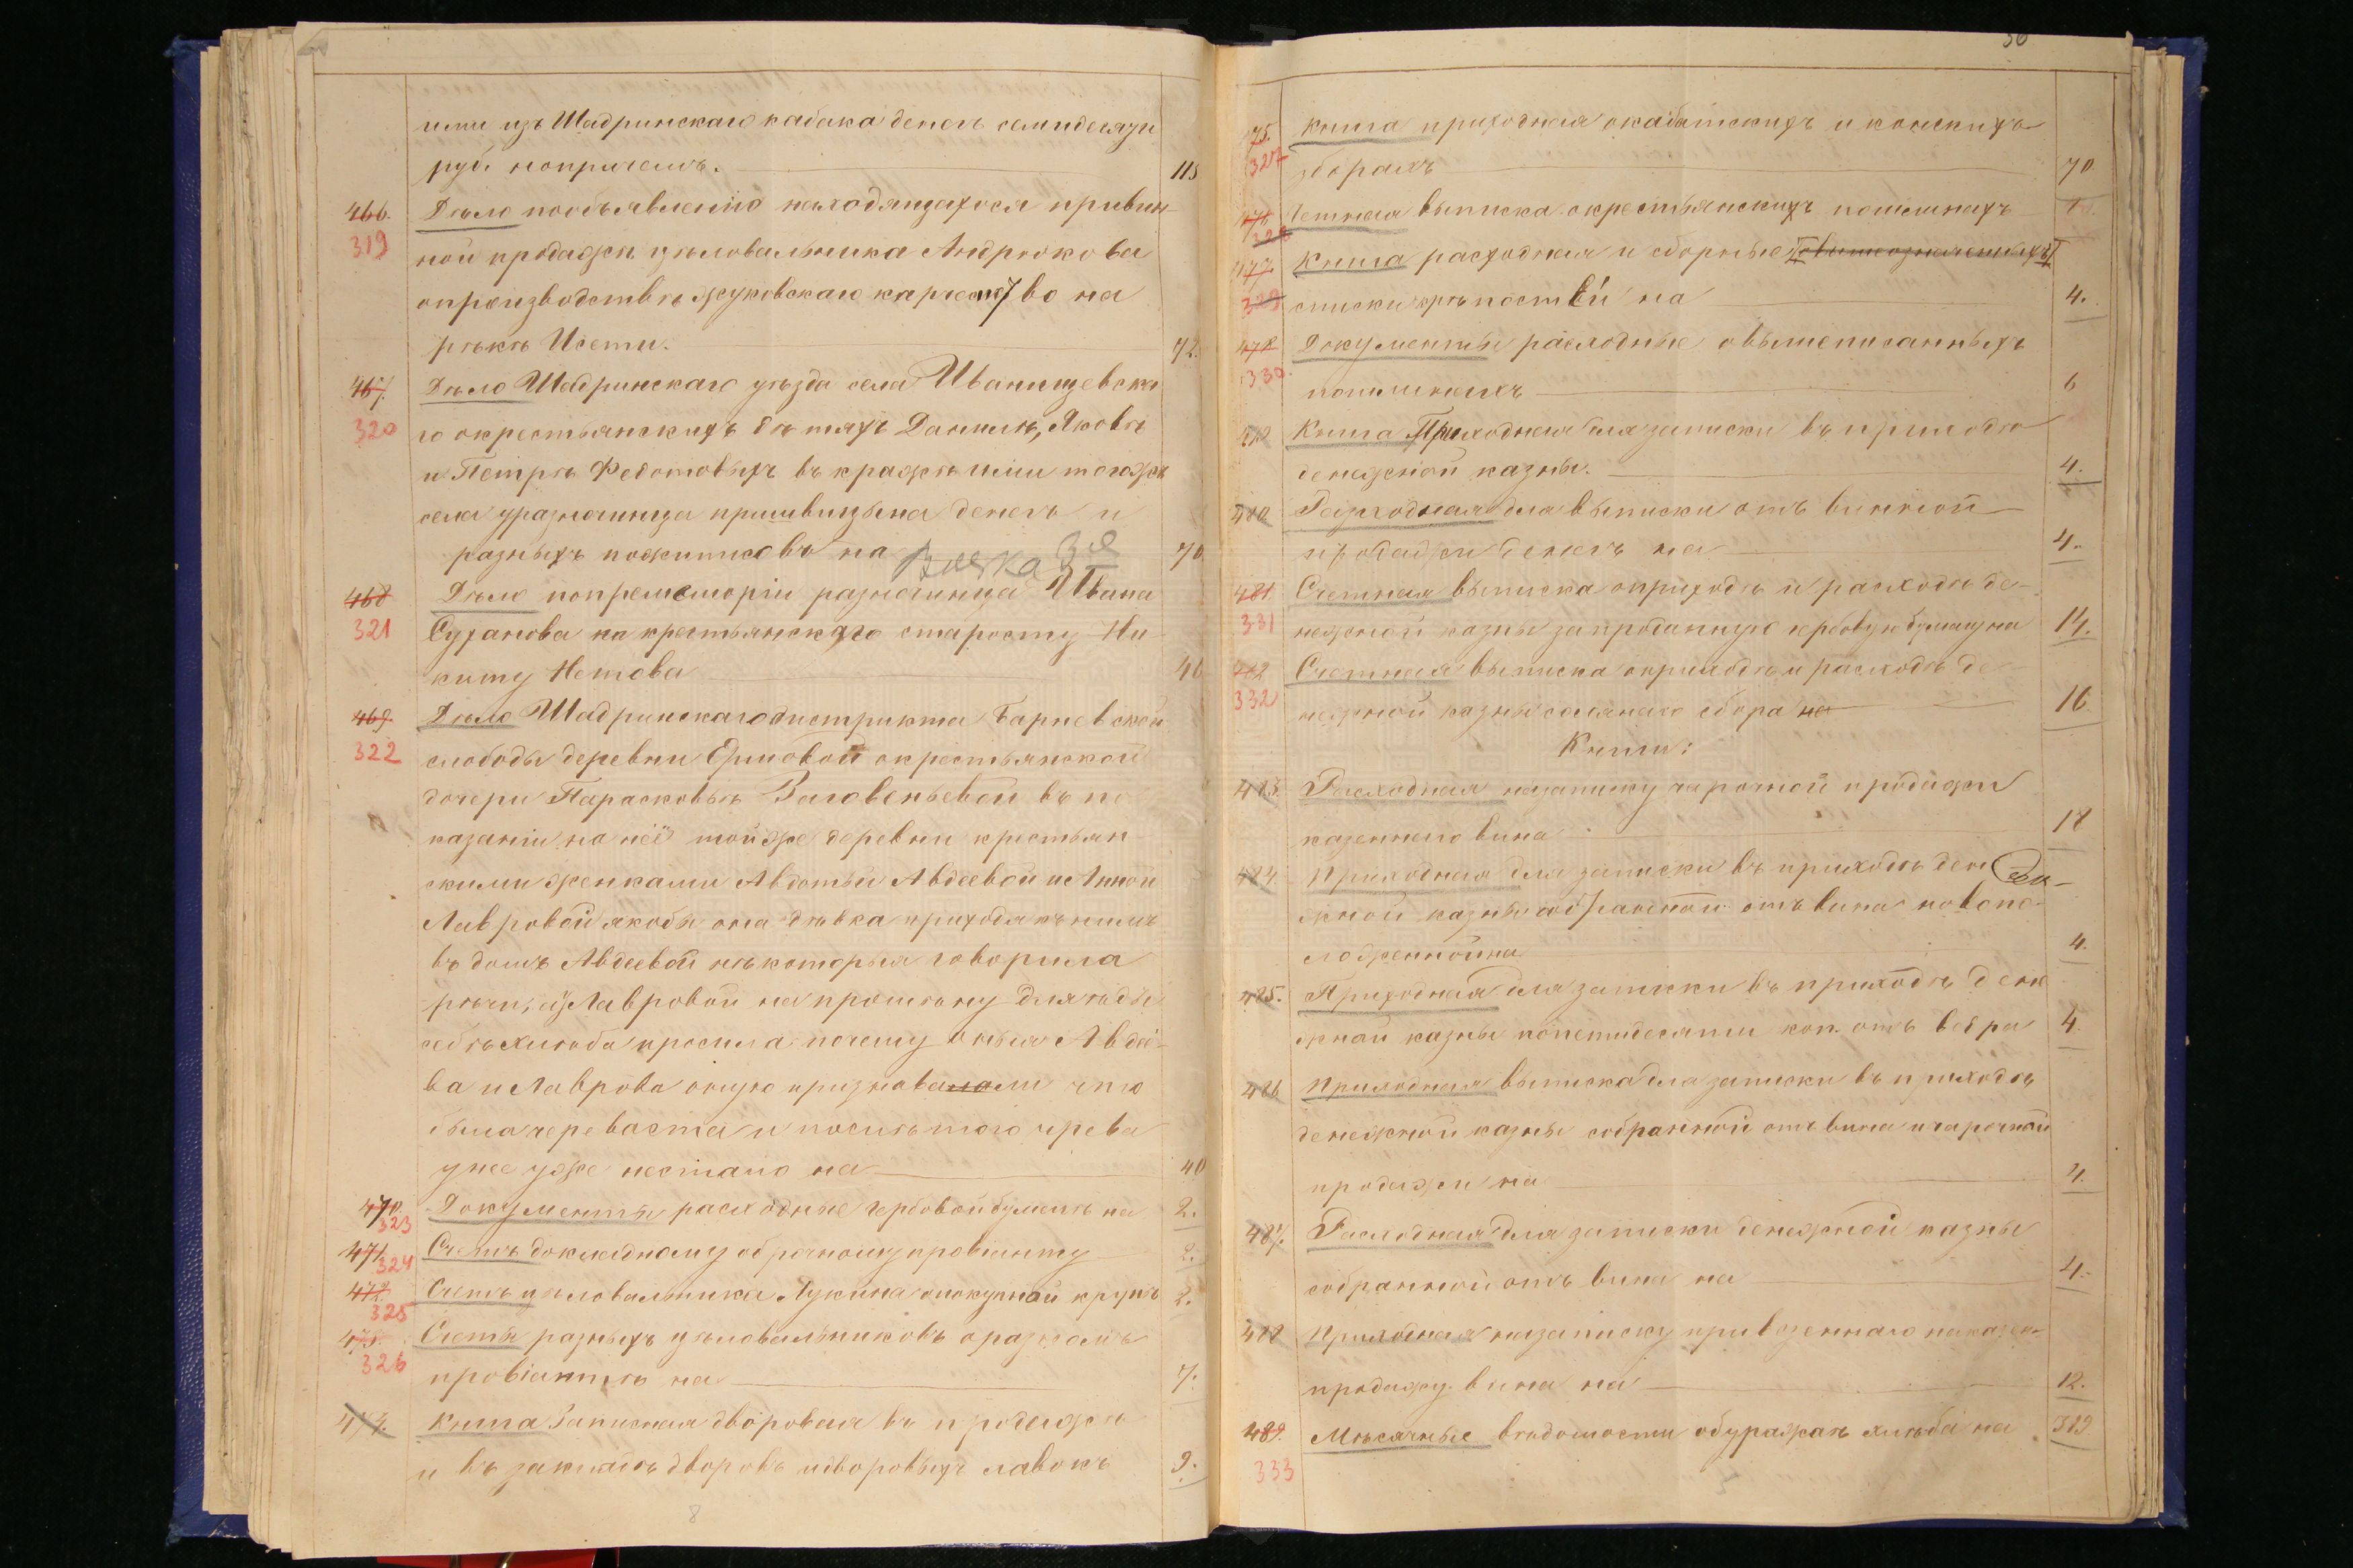 ими изъ Шадринскаго кабака денегъ семидесяти
руб. и о прочемъ. 115
466. Дѣло по объявленію находящагося при вин-
319 ной продажѣ цѣловальника Андрюкова
о производствѣ Жуковскаго корчемство на
рѣкѣ Исети. 72.
467. Дѣло Шадринскаго уѣзда села Иванищевска
320 го о крестьянскихъ дѣтяхъ Даниилѣ, Яковѣ
и Петрѣ Федотовыхъ въ кражѣ ими тогоже
села у разночинца денегъ и
разныхъ пожитковъ на 70.
468 Дѣло по промеморіи разночинца Ивана
321 на крестьянскаго старосту Ни
киту Нетова 46
469. Дѣло Шадринскаго дистрикта Барневской
322 слободы деревни о крестьянской
дочери Парасковьѣ въ по
казаніи на неё тойже деревни крестьян
скими женками Авдотьей Авдеевой и Анной
Лавровой якобы она дѣвка приходя къ нимъ
въ домъ Авдеевой нѣкоторыя говорила
рѣчи, а у Лавровой на для ѣды
себѣ хлѣба просила почему оныя Авдѣе-
ва и Лаврова оную признавали что
была череваста и послѣ того чрева
у нее уже нестало на 40
470. Документы расходные гербовой бумагѣ на 2.
323
471. Счетъ докладному оброчному провіанту 2.
324
472. Счетъ цѣловальника Лукина о покупной крупѣ 2.
325
473. Счеты разныхъ цѣловальниковъ о разномъ
326 провіантѣ на 7.
474. Книга Записная дворовая въ продажѣ
и въ закладѣ дворовъ и дворовыхъ лавокъ 9.
8
30
475. Книга приходная о кабатскихъ и конскихъ
327 зборахъ 70
476 Счетная выписка о крестьянскихъ пошлинахъ
328
477. Книга расходная и сборные о вышеозначенныхъ
329 списки крѣпостей на 4.
478 Документы расходные о вышеписанныхъ
330. пошлинахъ 6
479 Книга Приходная для записки въ приходъ
денежной казны. 4.
480 Расходная для выписки отъ винной
продажи денегъ на 4.
481 Счетная выписка о приходѣ и расходѣ де-
331 нежной казны за проданную гербовую бумагу на 14.
482 Счетная выписка о приходѣ и расходѣ де-
332 нежной казны солянаго сбора на 16.
Книги:
483. Расходная на записку чарочной продажи
казеннаго вина 18
484. Приходная для записки въ приходъ ден
жной казны собранной отъ вина новопо-
ложенной на 4.
485. Приходная для записки въ приходъ дене
жной казны по пятидесяти коп. отъ ведра 4.
486 Приходная выписка для записки въ приходъ
денежной казны собранной отъ вина и чарочной
продажи на 4.
487. Расходная для записки денежной казны
собранной отъ вина на 4.
488 Приходная на записку привезеннаго на казен-
продажу вина на 12.
489. Мѣсячныя вѣдомости о буражѣ хлѣба на 319
333